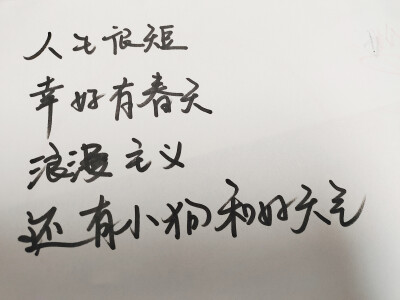 人生很短
幸好有春天
浪漫主义
还有小狗和好天气